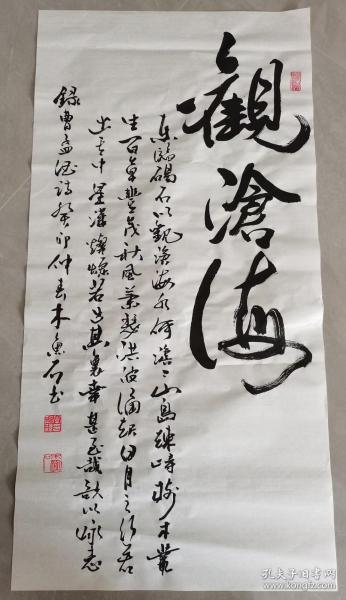 觀滄海
東臨碣石以觀滄海水何澹澹山島竦峙樹木叢
生百草豐茂秋風蕭瑟洪波湧起日月之行若
出其中星漢燦爛若出其裏幸甚至哉歌以咏志
錄曹孟德詩癸卯仲春木魚石書
孔夫子旧书网